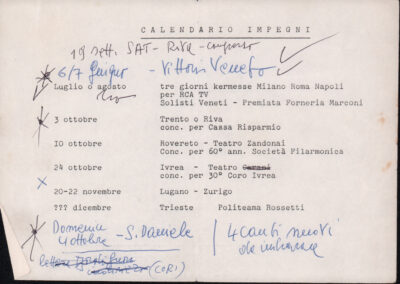 CALENDARIO IMPEGNI
19 sett. SAT - Riva - congresso
6/7 giugno - Vittorio Veneto
Luglio o agosto tre giorni kermesse Milano Roma Napoli
per RCA TV
Solisti Veneti - Premiata Forneria Marconi
3 ottobre Trento o Riva
conc. per Cassa Risparmio
10 ottobre Rovereto - Teatro Zandonai
conc. per 60° ann. Società Filarmonica
24 ottobre Ivrea - Teatro
conc. per 30° Coro Ivrea
20-22 novembre Lugano - Zurigo
??? dicembre Trieste Politeama Rossetti
Domenica
4 ottobre - S. Daniele
4 canti nuovi
(CORI)